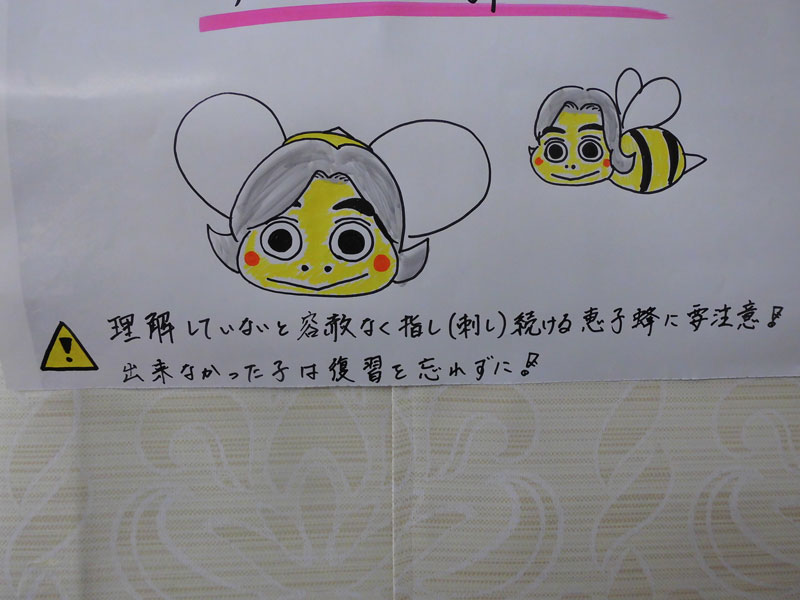 理解していないと容赦なく指し(刺し)続ける恵子蜂に要注意!
出来なかった子は復習を忘れずに!